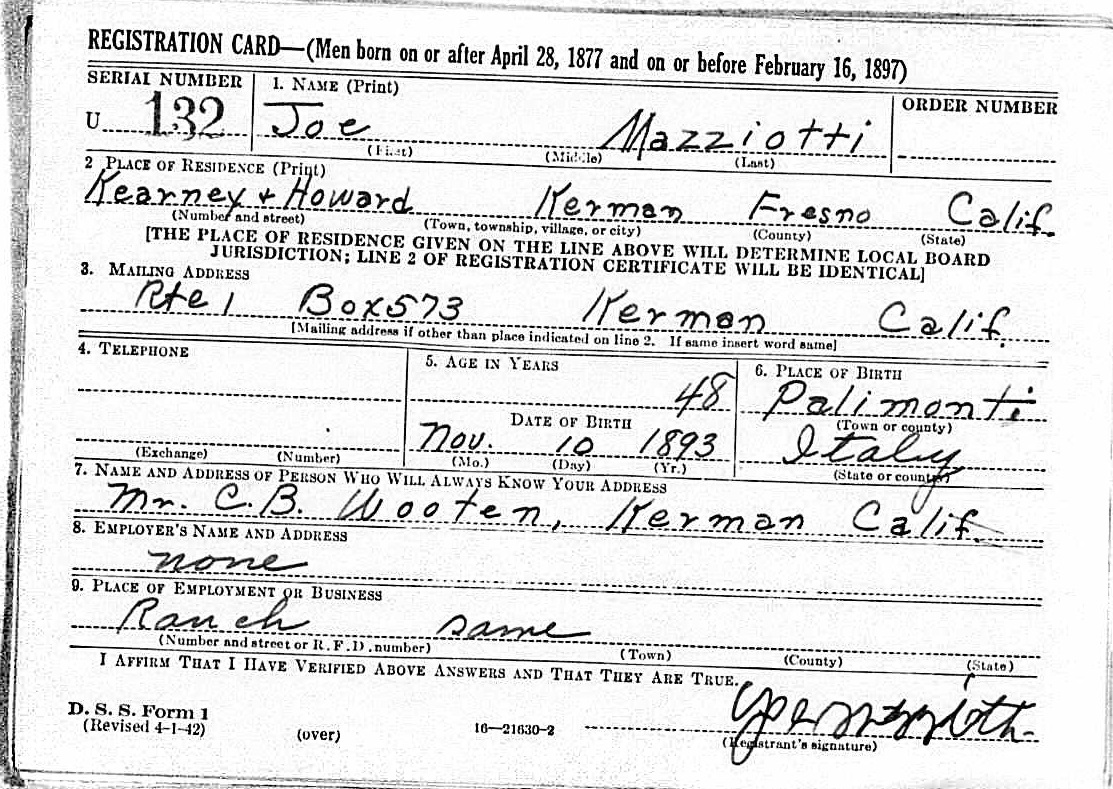 REGISTRATION CARD—(Men born on or after April 28, 1877 and on or before February 16, 1897)
SERIAL NUMBER 1. NAME (Print) ORDER NUMBER
U 132 Joe Mazziotti
(First) (Middle) (Last)
2 PLACE OF RESIDENCE (Print)
Kearney & Howard Kerman Fresno Calif.
(Number and street) (Town, township, village, or city) (County) (State)
[THE PLACE OF RESIDENCE GIVEN ON THE LINE ABOVE WILL DETERMINE LOCAL BOARD
JURISDICTION; LINE 2 OF REGISTRATION CERTIFICATE WILL BE IDENTICAL]
3. MAILING ADDRESS
Rte 1 Box 573 Kerman Calif.
[Mailing address if other than place indicated on line 2. If same insert word same]
4. TELEPHONE 5. AGE IN YEARS 6. PLACE OF BIRTH
48 Palimonti
DATE OF BIRTH (Town or county)
Nov. 10 1893 Italy
(Exchange) (Number) (Mo.) (Day) (Yr.) (State or country)
7. NAME AND ADDRESS OF PERSON WHO WILL ALWAYS KNOW YOUR ADDRESS
Mr. C.B. Wooten, Kerman Calif.
8. EMPLOYER'S NAME AND ADDRESS
none
9. PLACE OF EMPLOYMENT OR BUSINESS
Ranch same
(Number and street or R. F. D. number) (Town) (County) (State)
I AFFIRM THAT I HAVE VERIFIED ABOVE ANSWERS AND THAT THEY ARE TRUE.
D. S. S. Form 1
(Revised 4-1-42) (over) 16—21630-2 (Registrant's signature)